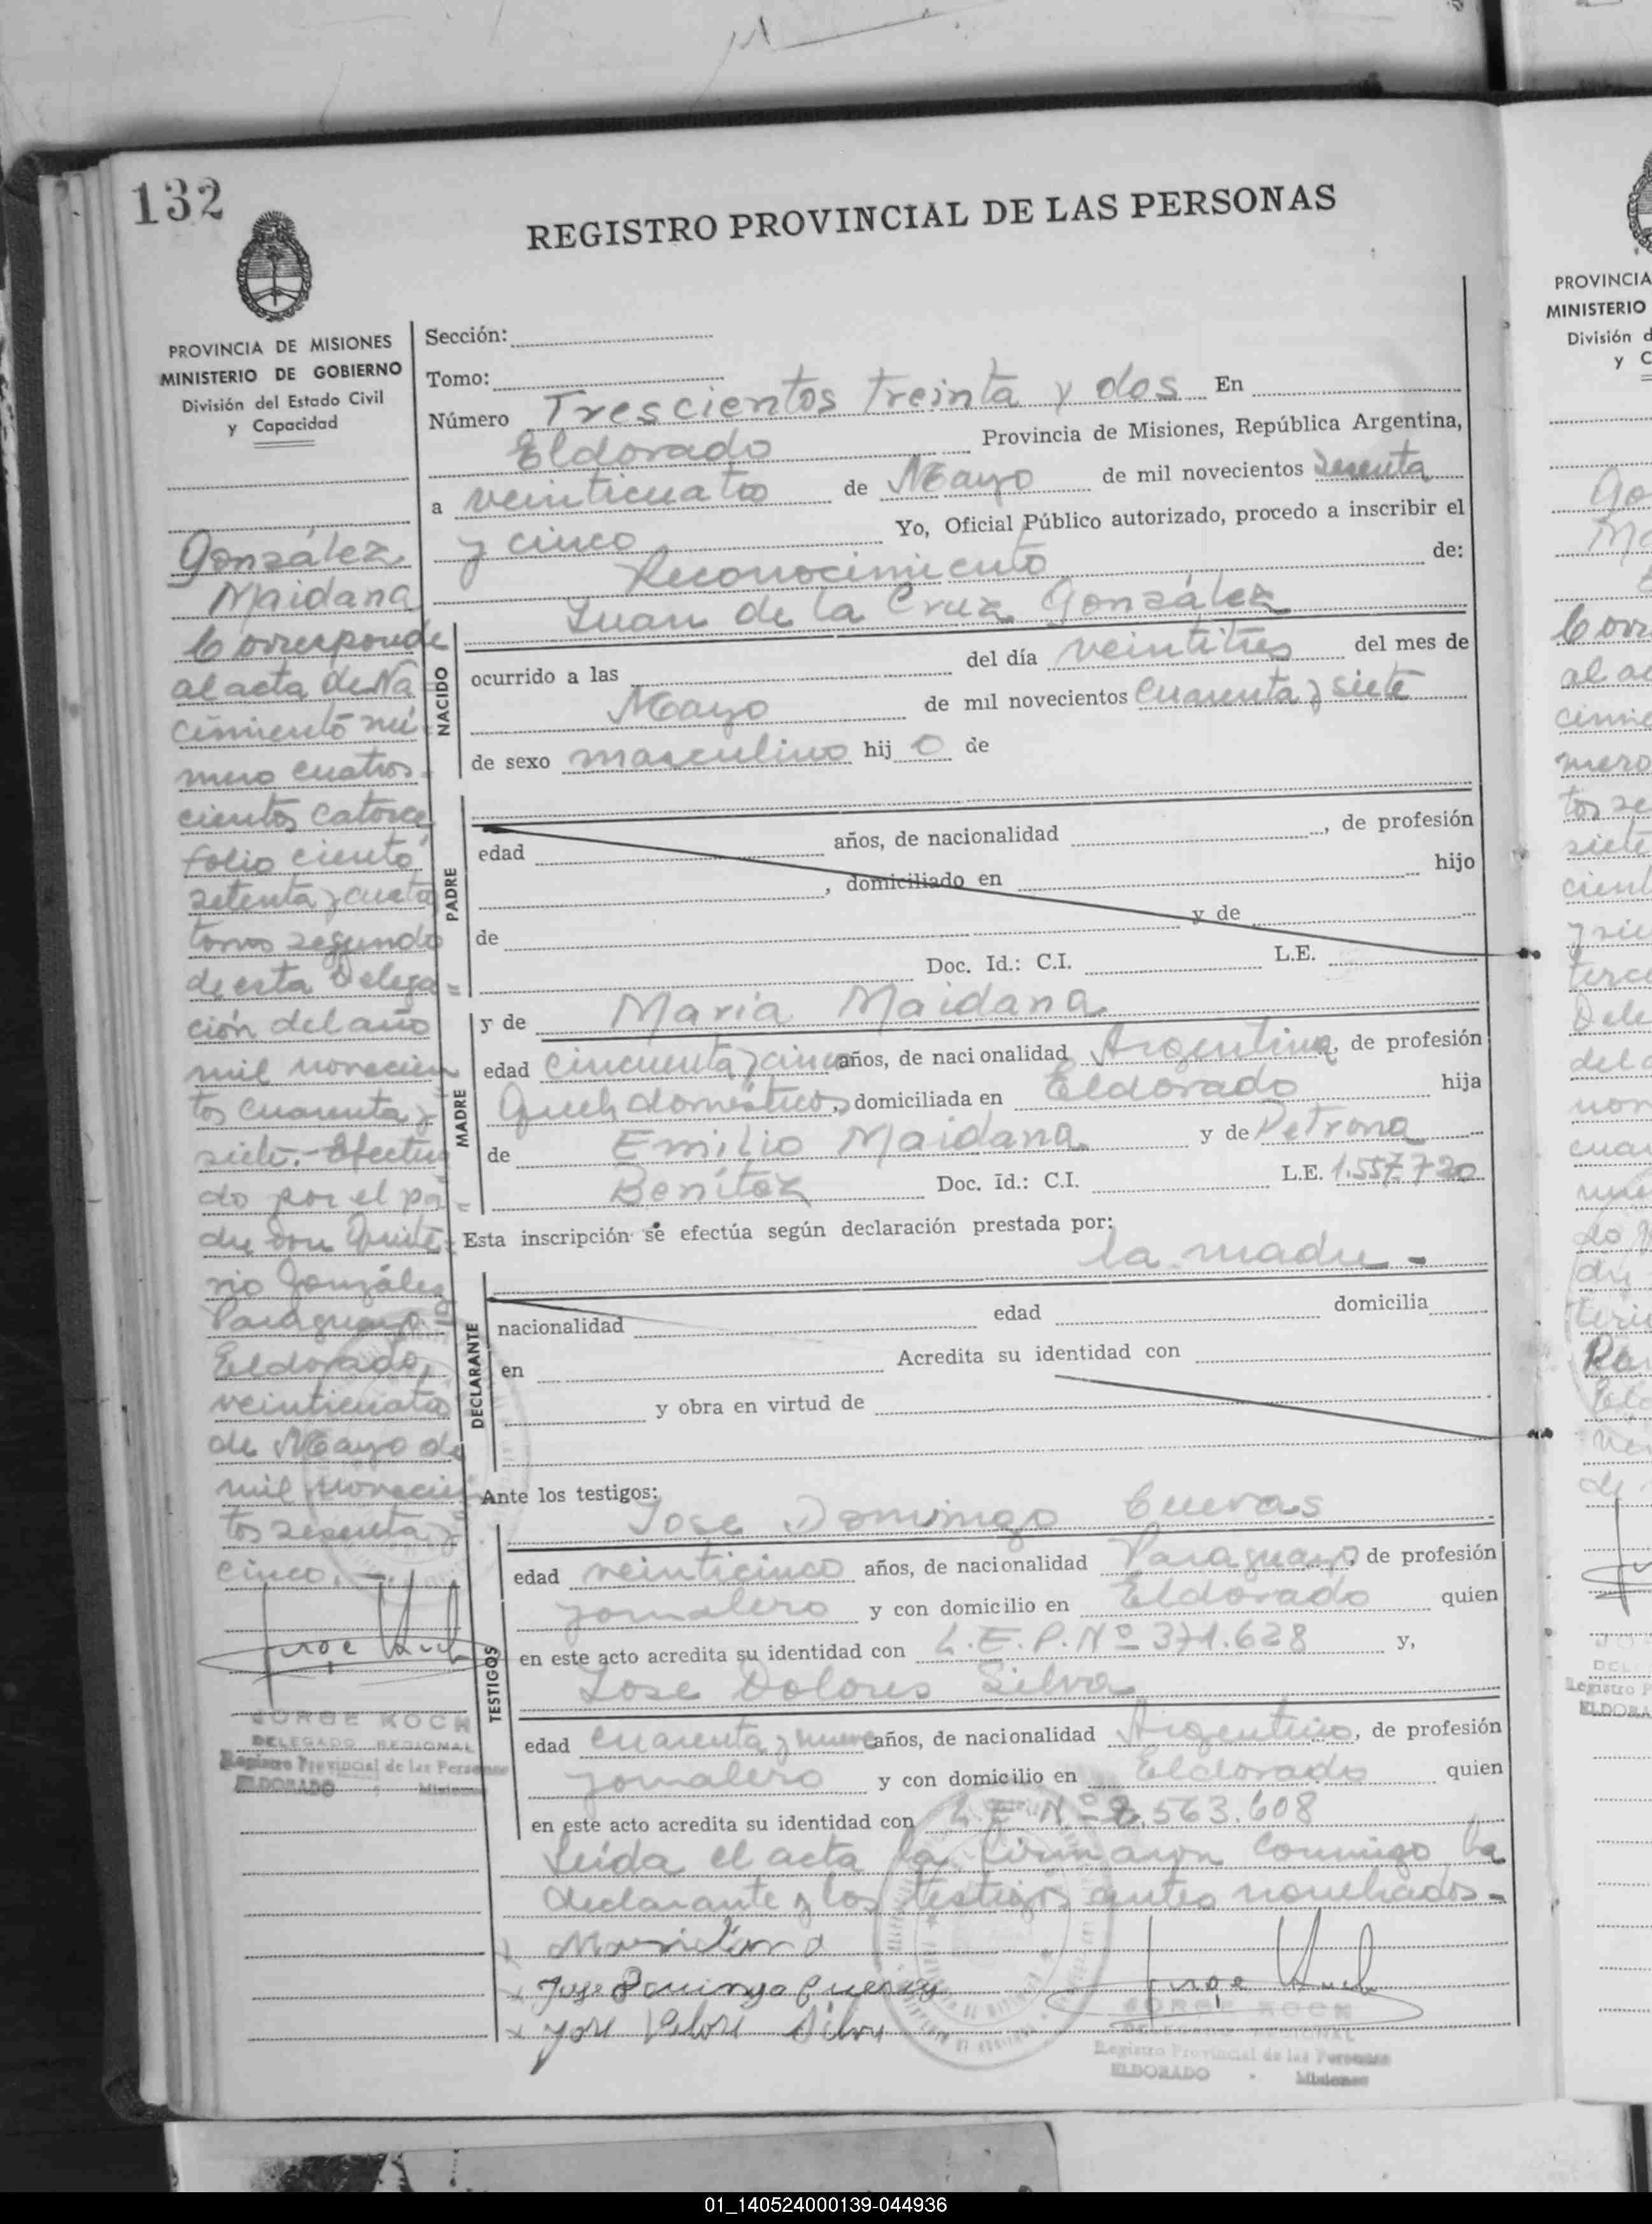 132
REGISTRO PROVINCIAL DE LAS PERSONAS
PROVINCIA DE MISIONES
MINISTERIO DE GOBIERNO
División del Estado Civil
y Capacidad
González
Maidana
Corresponde
al acta de Na
cimiento nú
mero cuatros-
cientos catorce
folio ciento
setenta y cuatro
tomo segundo
de esta Delega=
ción del año
mil novecien
tos cuarenta y
siete.- Efectua
do por el pa=
dre don Quinte-
rio González
Paraguayo.=
Eldorado,
veinticuatro
de Mayo de
mil novecien
tos sesenta y
cinco.-
Jorge Koch
JORGE KOCH
DELEGADO REGIONAL
Registro Provincial de las Personas
ELDORADO - Misiones
Sección:
Tomo:
Número Trescientos treinta y dos En
Eldorado Provincia de Misiones, República Argentina,
a veinticuatro de Mayo de mil novecientos sesenta
y cinco Yo, Oficial Público autorizado, procedo a inscribir el
Reconocimiento de:
Juan de la Cruz González
NACIDO
ocurrido a las del día veintitres del mes de
Mayo de mil novecientos cuarenta y siete
de sexo masculino hij o de
PADRE
edad años, de nacionalidad , de profesión
, domiciliado en hijo
de y de
Doc. Id.: C.I. L.E.
MADRE
y de Maria Maidana
edad cincuenta y cinco años, de nacionalidad Argentina, de profesión
Queh. domésticos, domiciliada en Eldorado hija
de Emilio Maidana y de Petrona
Benítez Doc. Id.: C.I. L.E. 1.557.720
Esta inscripción se efectúa según declaración prestada por:
la madre -
DECLARANTE
nacionalidad edad domicilia
en Acredita su identidad con
y obra en virtud de
Ante los testigos:
Jose Domingo Cuevas
TESTIGOS
edad veinticinco años, de nacionalidad Paraguayo, de profesión
jornalero y con domicilio en Eldorado quien
en este acto acredita su identidad con L.E.P. Nº 371.628 y,
Jose Dolores Silva
edad cuarenta y nueve años, de nacionalidad Argentino, de profesión
jornalero y con domicilio en Eldorado quien
en este acto acredita su identidad con L.E. Nº 2.563.608
Leída el acta la firmaron conmigo la
declarante y los testigos antes nombrados.-
x Jose Domingo Cuevas
x Jose Silva
Jorge Koch
JORGE KOCH
DELEGADO REGIONAL
Registro Provincial de las Personas
ELDORADO - Misiones
PROVINCIA
MINISTERIO
División d
y C
01_140524000139-044936